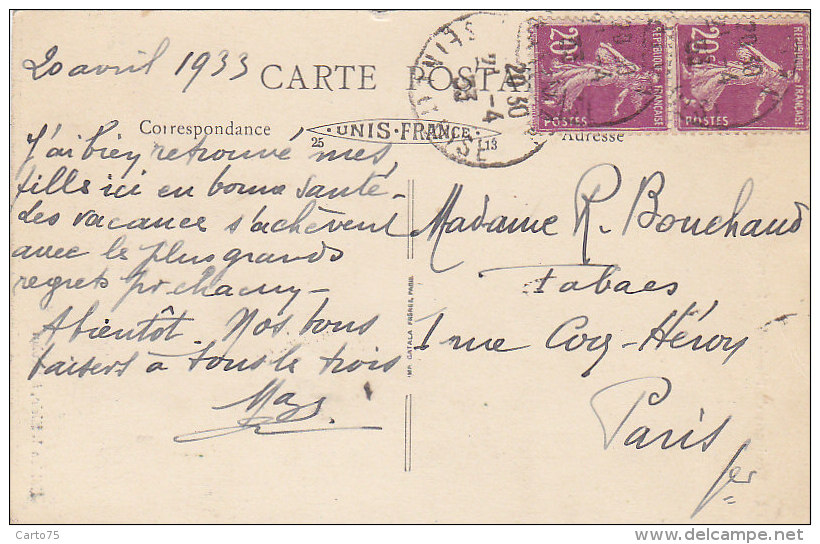 20 avril 1933
CARTE POSTA
Correspondance
UNIS-FRANCE
25
13
Adresse
J'ai bien retrouvé mes
filles ici en bonne santé -
des vacance s'achèvent
avec le plus grands
regrets pr chacun -
A bientôt. Nos bons
baisers à tous le trois
Madame R. Bouchaud
Tabacs
1 rue Coq-Héron
Paris
1er
IMP. CATALA FRÈRES, PARIS
20c
REPUBLIQUE FRANÇAISE
POSTES
20c
REPUBLIQUE FRANÇAISE
POSTES
20 30
21 -4
33
SEINE
Carto75
www.delcampe.net